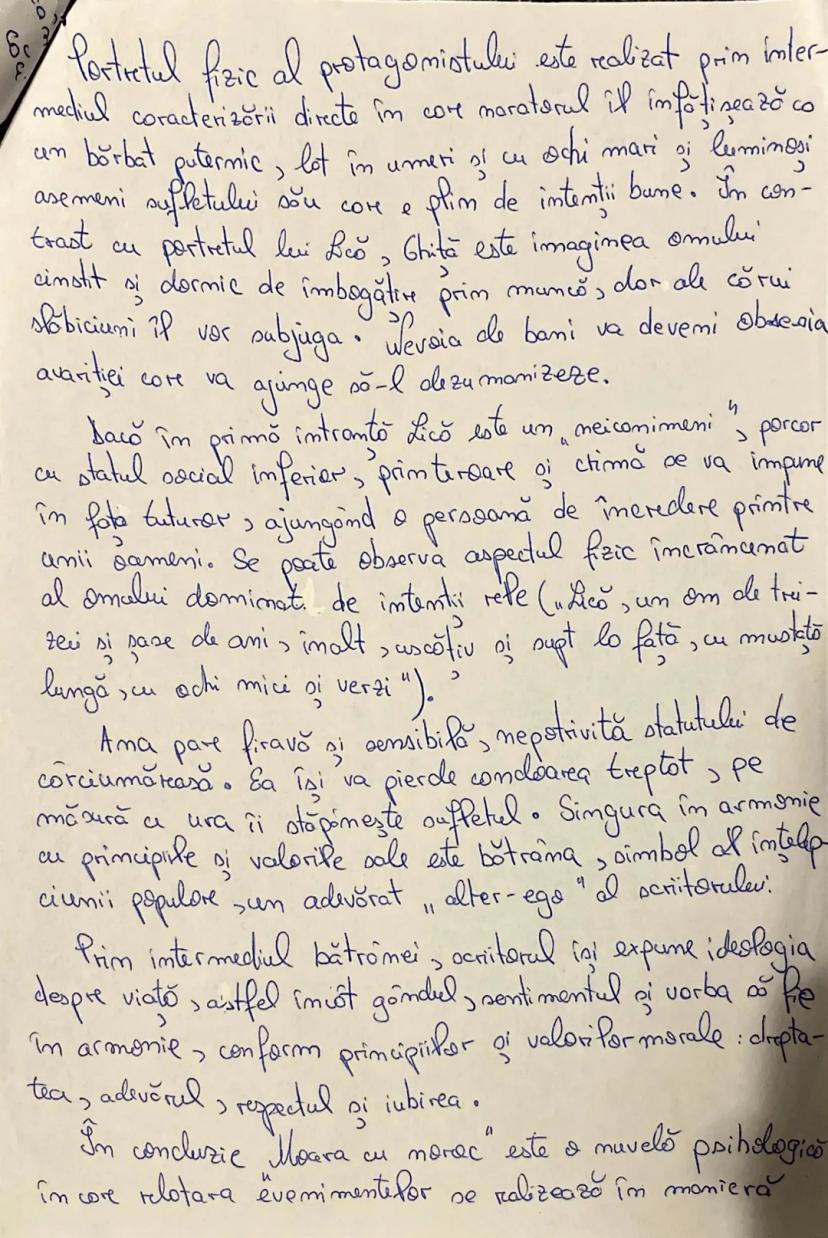 Portretul fizic al protagonistului este realizat prin inter-
mediul caracterizării directe în care naratorul îl înfățișează ca
un bărbat puternic, lat în umeri și cu ochi mari și luminoși
asemeni sufletului său care e plin de intenții bune. În con-
trast cu portretul lui Lică, Ghiță este imaginea omului
cinstit și dornic de îmbogățire prin muncă, dar ale cărui
slăbiciuni îl vor subjuga. Nevoia de bani va deveni obsesia
avariției care va ajunge să-l dezumanizeze.
Dacă în primă intrantă Lică este un „neicanimeni", porcar
cu statul social inferior, prin teroare și crimă se va impune
în fața tuturor, ajungând o persoană de încredere printre
unii oameni. Se poate observa aspectul fizic încrâncenat
al omului dominat de intenții rele („Lică, un om de trei-
zeci și șase de ani, înalt, uscățiv și supt la față, cu mustață
lungă, cu ochi mici și verzi").
Ana pare firavă și sensibilă, nepotrivită statutului de
cârciumăreasă. Ea își va pierde candoarea treptat, pe
măsură ce ura îi stăpânește sufletul. Singura în armonie
cu principiile și valorile sale este bătrâna, simbol al înțelep-
ciunii populare, un adevărat „alter-ego" al scriitorului.
Prin intermediul bătrânei, scriitorul își expune ideologia
despre viață, astfel încât gândul, sentimentul și vorba să fie
în armonie, conform principiilor și valorilor morale: drepta-
tea, adevărul, respectul și iubirea.
În concluzie „Moara cu noroc" este o nuvelă psihologică
în care relatara evenimentelor se realizează în manieră